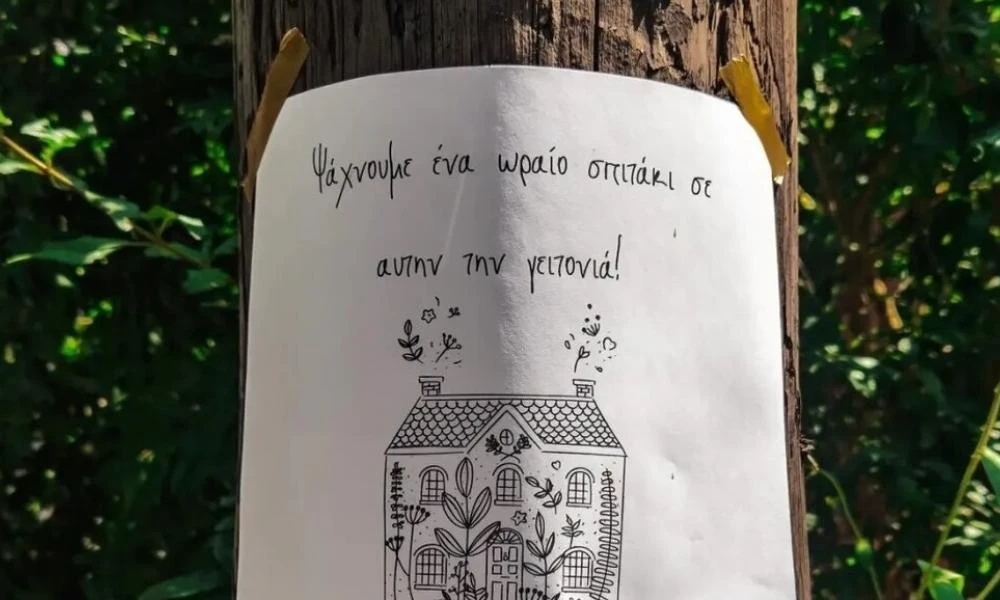 Ψάχνουμε ένα ωραίο σπιτάκι σε
αυτην την γειτονιά!